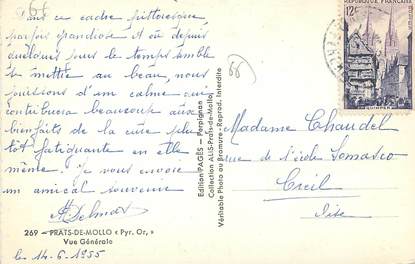 66
Dans ce cadre pittoresque,
parfois grandiose et où depuis
quelques jours le temps semble
se mettre au beau, nous
jouissons d'un calme qui
contribuera beaucoup aux
bienfaits de la cure plutôt
fatiguante en elle
même. Je vous envoie
un amical souvenir
269 - PRATS-DE-MOLLO « Pyr. Or. »
Vue Générale
le 14-6-1955
Edition PAGÈS - Perpignan
Collection ALIS-Prats-de-Mollo
Véritable Photo au Bromure - Reprod. Interdite
66
REPUBLIQUE FRANÇAISE
12F
QUIMPER
Madame Chaudel
rue de l'école
Creil
Oise